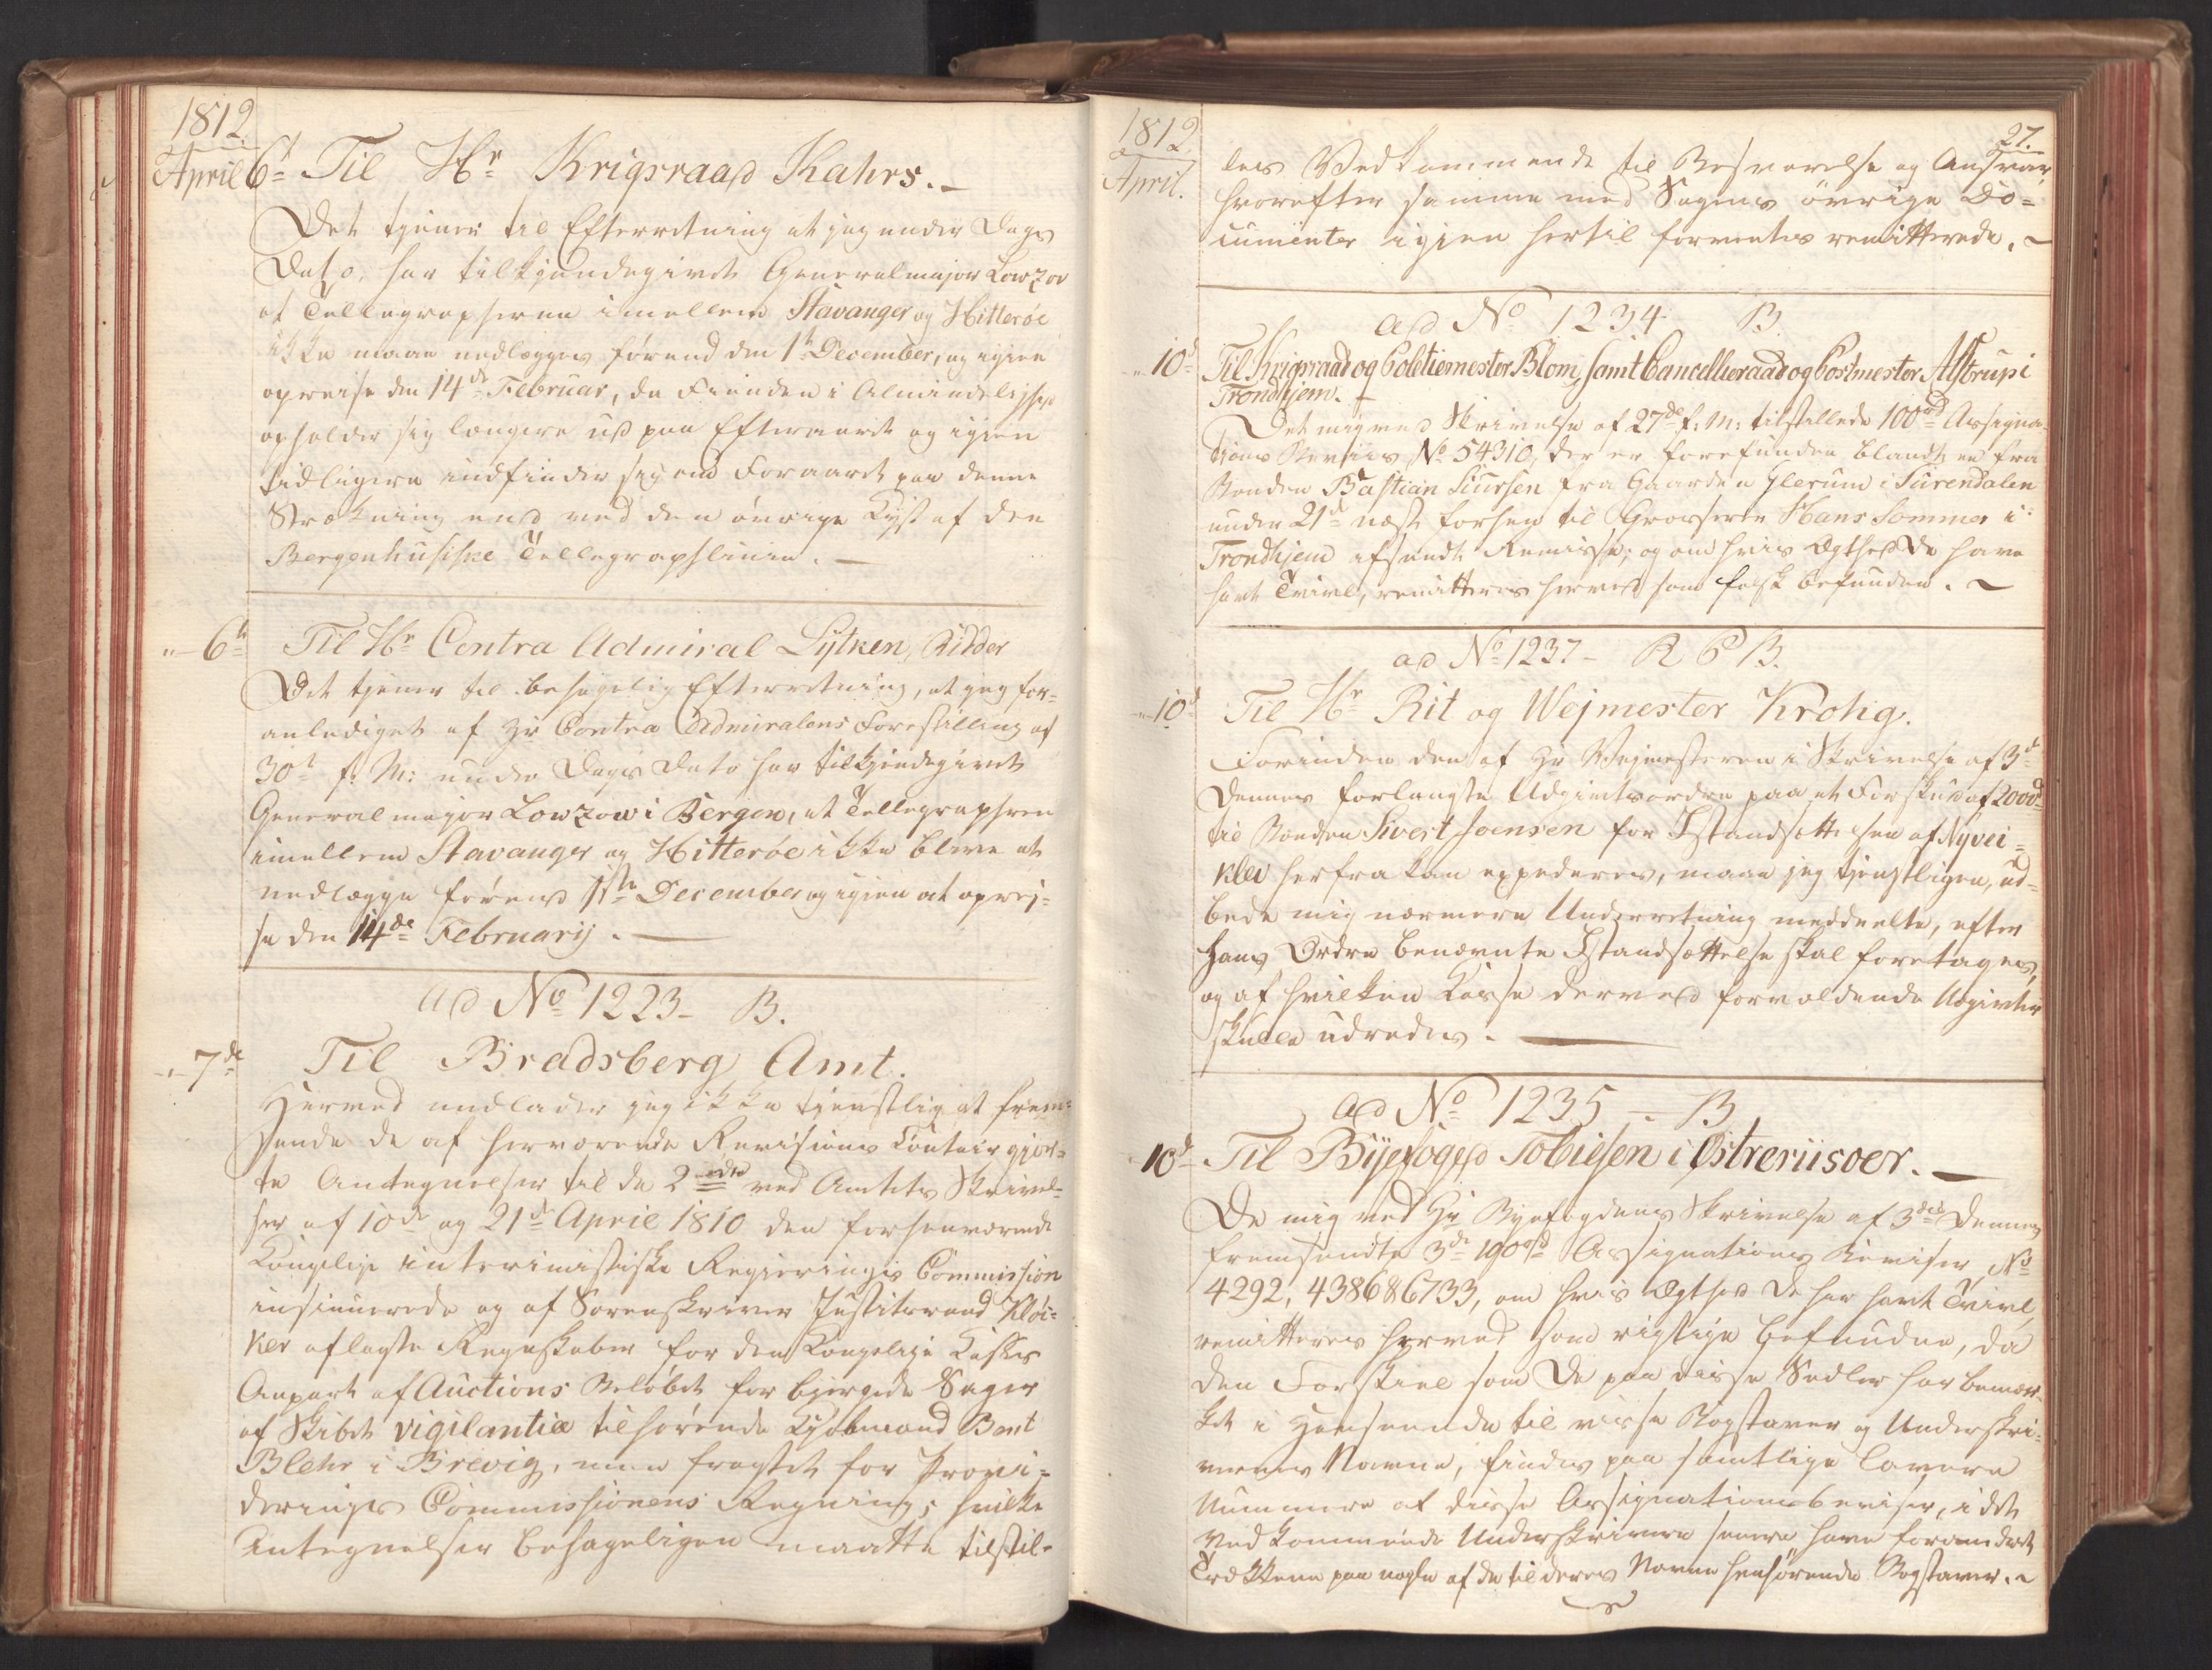 1812
April 6t Til Hr Krigsraad Kahrs. –
Det tjener til Efterretning at jeg under Dags
Dato, har tilkjendegivet Generalmajor Lowzov
at Tellegrapherne imellem Stavanger og Hitterøe
ikke maae nedlægges førend den 1te December, og igien
opreise den 14de Februar, da Fienden i Almindelighed
opholder sig længere ud paa Efteraaret og igien
tidligere indfinder sig om Foraaret paa denne
Strækning end ved den øvrige Kyst af den
Bergenhusiske Tellegraphlinie. –
" – 6te Til Hr Contra Admiral Lütken, Ridder
Det tjener til behagelig Efterretning, at jeg for=
anlediget af Hr Contra Admiralens Forestilling af
30te f: M: under Dags Dato har tilkjendegivet
Generalmajor Lowzow i Bergen, at Tellegrapherne
imellem Stavanger og Hitterøe ikke blive at
nedlægge førend 1ste December og igien at oprej=
se den 14de Februarij. –
ad No 1223 – B.
" – 7de Til Bradsberg Amt.
Herved undlader jeg ikke tjenstlig at frem=
sende de af herværende Revisions Contoir gjor=
te Antegnelser til de 2nde ved Amtets Skrivel=
ser af 10de og 21de April 1810 den forhenværende
Kongelige interimistiske Regierings Commission
insinuerede og af Sorenskriver Justitsraad Kløc=
ker aflagte Regnskaber for den Kongelige Casses
Anpart af Auctions Beløbet for bjergede Sager
af Skibet vigilantia tilhørende Kjøbmand Bent
Blehr i Brevig, men fragtet for Provi=
derings Commissionens Regning; hvilke
Antegnelser behageligen maatte tilstil=
1812
April.
27.
les Vedkommende til Besvarelse og Ansvar,
hvorefter samme med Sagens øvrige Do=
cumenter igjen hertil forventes remitterede. –
ad No 1234 B.
" – 10d Til Krigsraad og Politiemester Blom, samt Cancellieraad og Postmester Alstrup i
Trondhjem. –
Det mig ved Skrivelse af 27de f: M: tilstillede 100rd Assigna=
tions Beviis No 54310, der er forefunden blandt en fra
Bonden Bastian Siursen fra Gaarden Glerum i Surendalen
under 21d næst forhen til Grosserer Hans Sommer i
Trondhjem afsendt Remisse, og om hvis Ægthed De have
havt Tvivl, remitteres herved som falsk befunden. –
ad No 1237 – R P B.
" – 10d Til Hr Rit og Wejmester Krohg.
Forinden den af Hr Vejmesteren i Skrivelse af 3de
dennes forlangte Udgivtsordre paa et Forskud af 200rd
til Bonden Sivert Joensen for Istandsættelsen af Nyvei=
klev herfra kan expederes, maae jeg tjenstligen, ud=
bede mig nærmere Underretning meddeelte, efter
hans Ordre benævnte Istandsættelse skal foretages,
og af hvilken Casse derved forvoldende Udgivter
skulle udredes. –
ad No 1235 – B
10d Til Byefoged Tobiesen i Østreriisoer. –
De mig ved Hr Byefogdens Skrivelse af 3die dennes
fremsendte 3de 100rd Assignations Beviser, No
4292, 4386 & 6733, om hvis Ægthed De har havt Tvivl,
remitteres herved som rigtige befundne, da
den Forskiel som De paa disse Sedler har bemær=
ket i Henseende til visse Bogstaver og Underskri=
vernes Navne, findes paa samtlige lavere
Nummere af disse Assignationsbeviser, idet
Vedkommende Underskrivere senere have forandret
Trækkene paa nogle af de til deres Navne henhørende Bogstaver. –